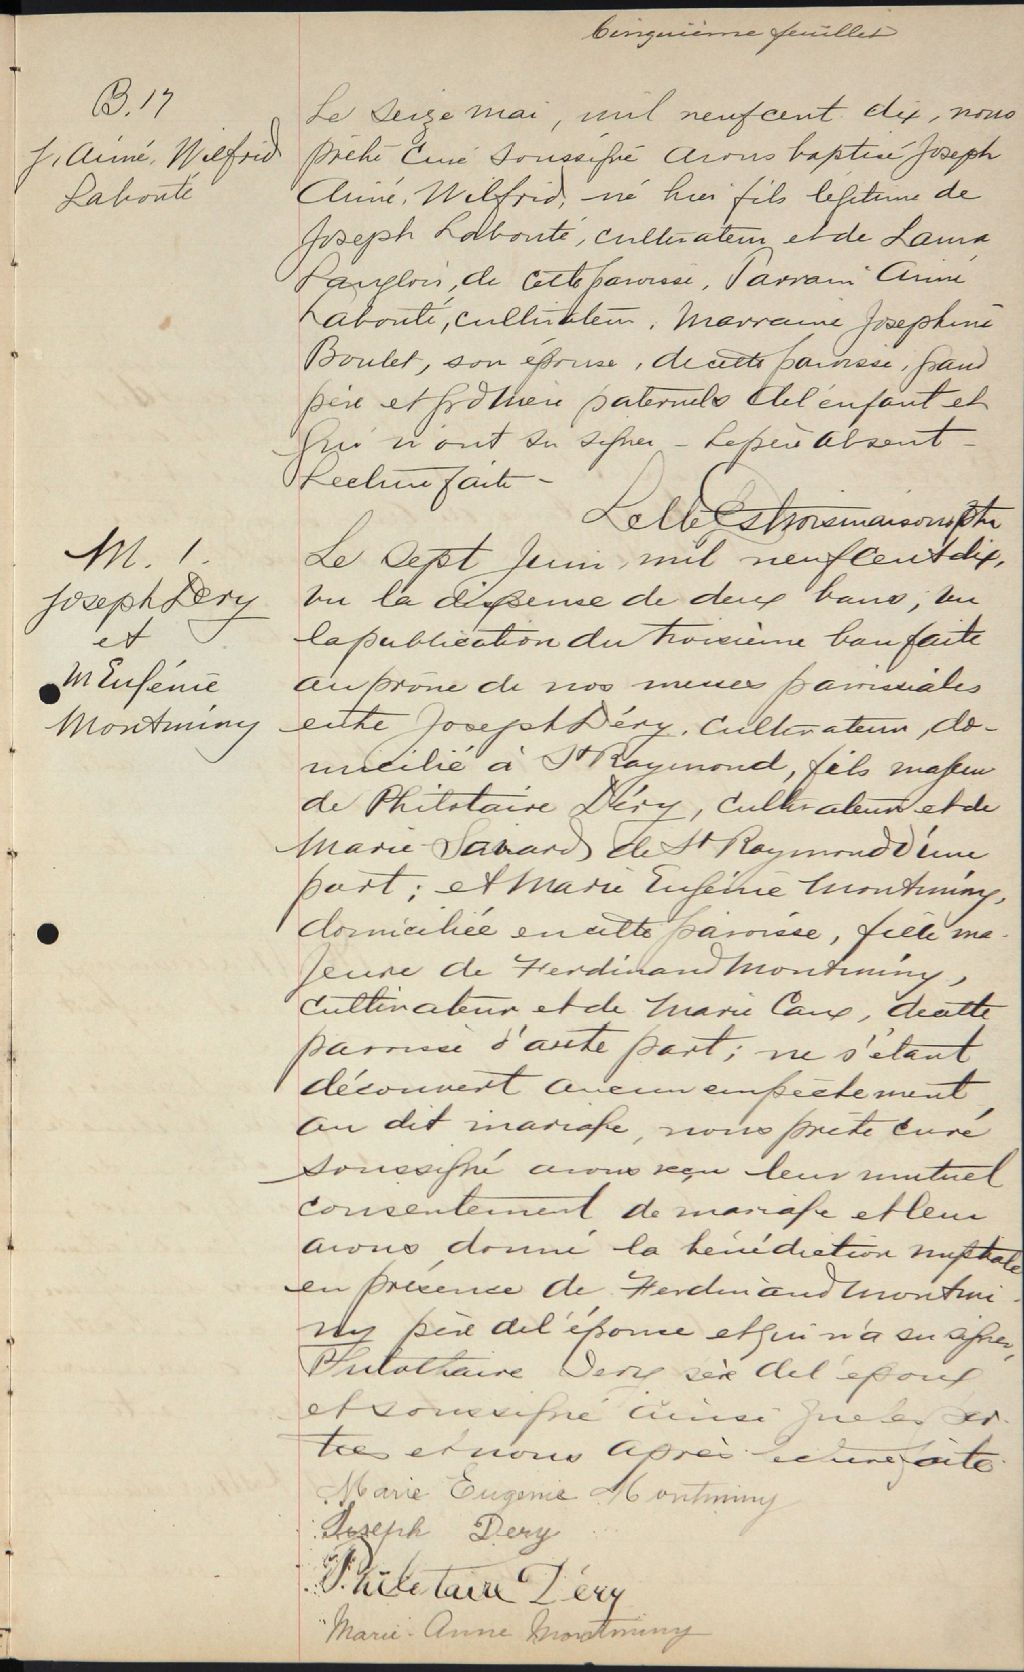 Cinquième feuillet
B. 17
J. Aimé, Wilfrid
Labonté
Le seize mai, mil neuf cent dix, nous
prêtre curé soussigné avons baptisé Joseph
Aimé, Wilfrid, né hier fils légitime de
Joseph Labonté, cultivateur et de Laura
Langlois, de cette paroisse, Parrain Aimé
Labonté, cultivateur, Marraine Josephine
Boulet, son épouse, de cette paroisse, grand
père et grd mère paternels de l'enfant et
qui n'ont su signer - le père absent -
Lecture faite -
Trois-Maisons ptre
M. 1.
Joseph Déry
et
M Eugénie
Montminy
Le sept juin, mil neuf cent dix,
vu la dispense de deux bans, vu
la publication du troisième ban faite
au prône de nos messes paroissiales
entre Joseph Déry, cultivateur, do-
micilié à St Raymond, fils majeur
de Philotaire Déry, cultivateur et de
Marie Savard de St Raymond d'une
part; et Marie Eugénie Montminy,
domiciliée en cette paroisse, fille ma-
jeure de Ferdinand Montminy,
cultivateur et de Marie Caux, de cette
paroisse d'autre part; ne s'étant
découvert aucun empêchement
au dit mariage, nous prêtre curé
soussigné avons reçu leur mutuel
consentement de mariage et leur
avons donné la bénédiction nuptiale
en présence de Ferdinand Montmi-
ny père de l'épouse et qui n'a su signer,
Philothaire Dery père de l'époux
et soussigné ainsi que les par-
ties et nous après lecture faite
Marie Eugenie Montminy
Joseph Dery
Philetaire Déry
Marie-Anne Montminy